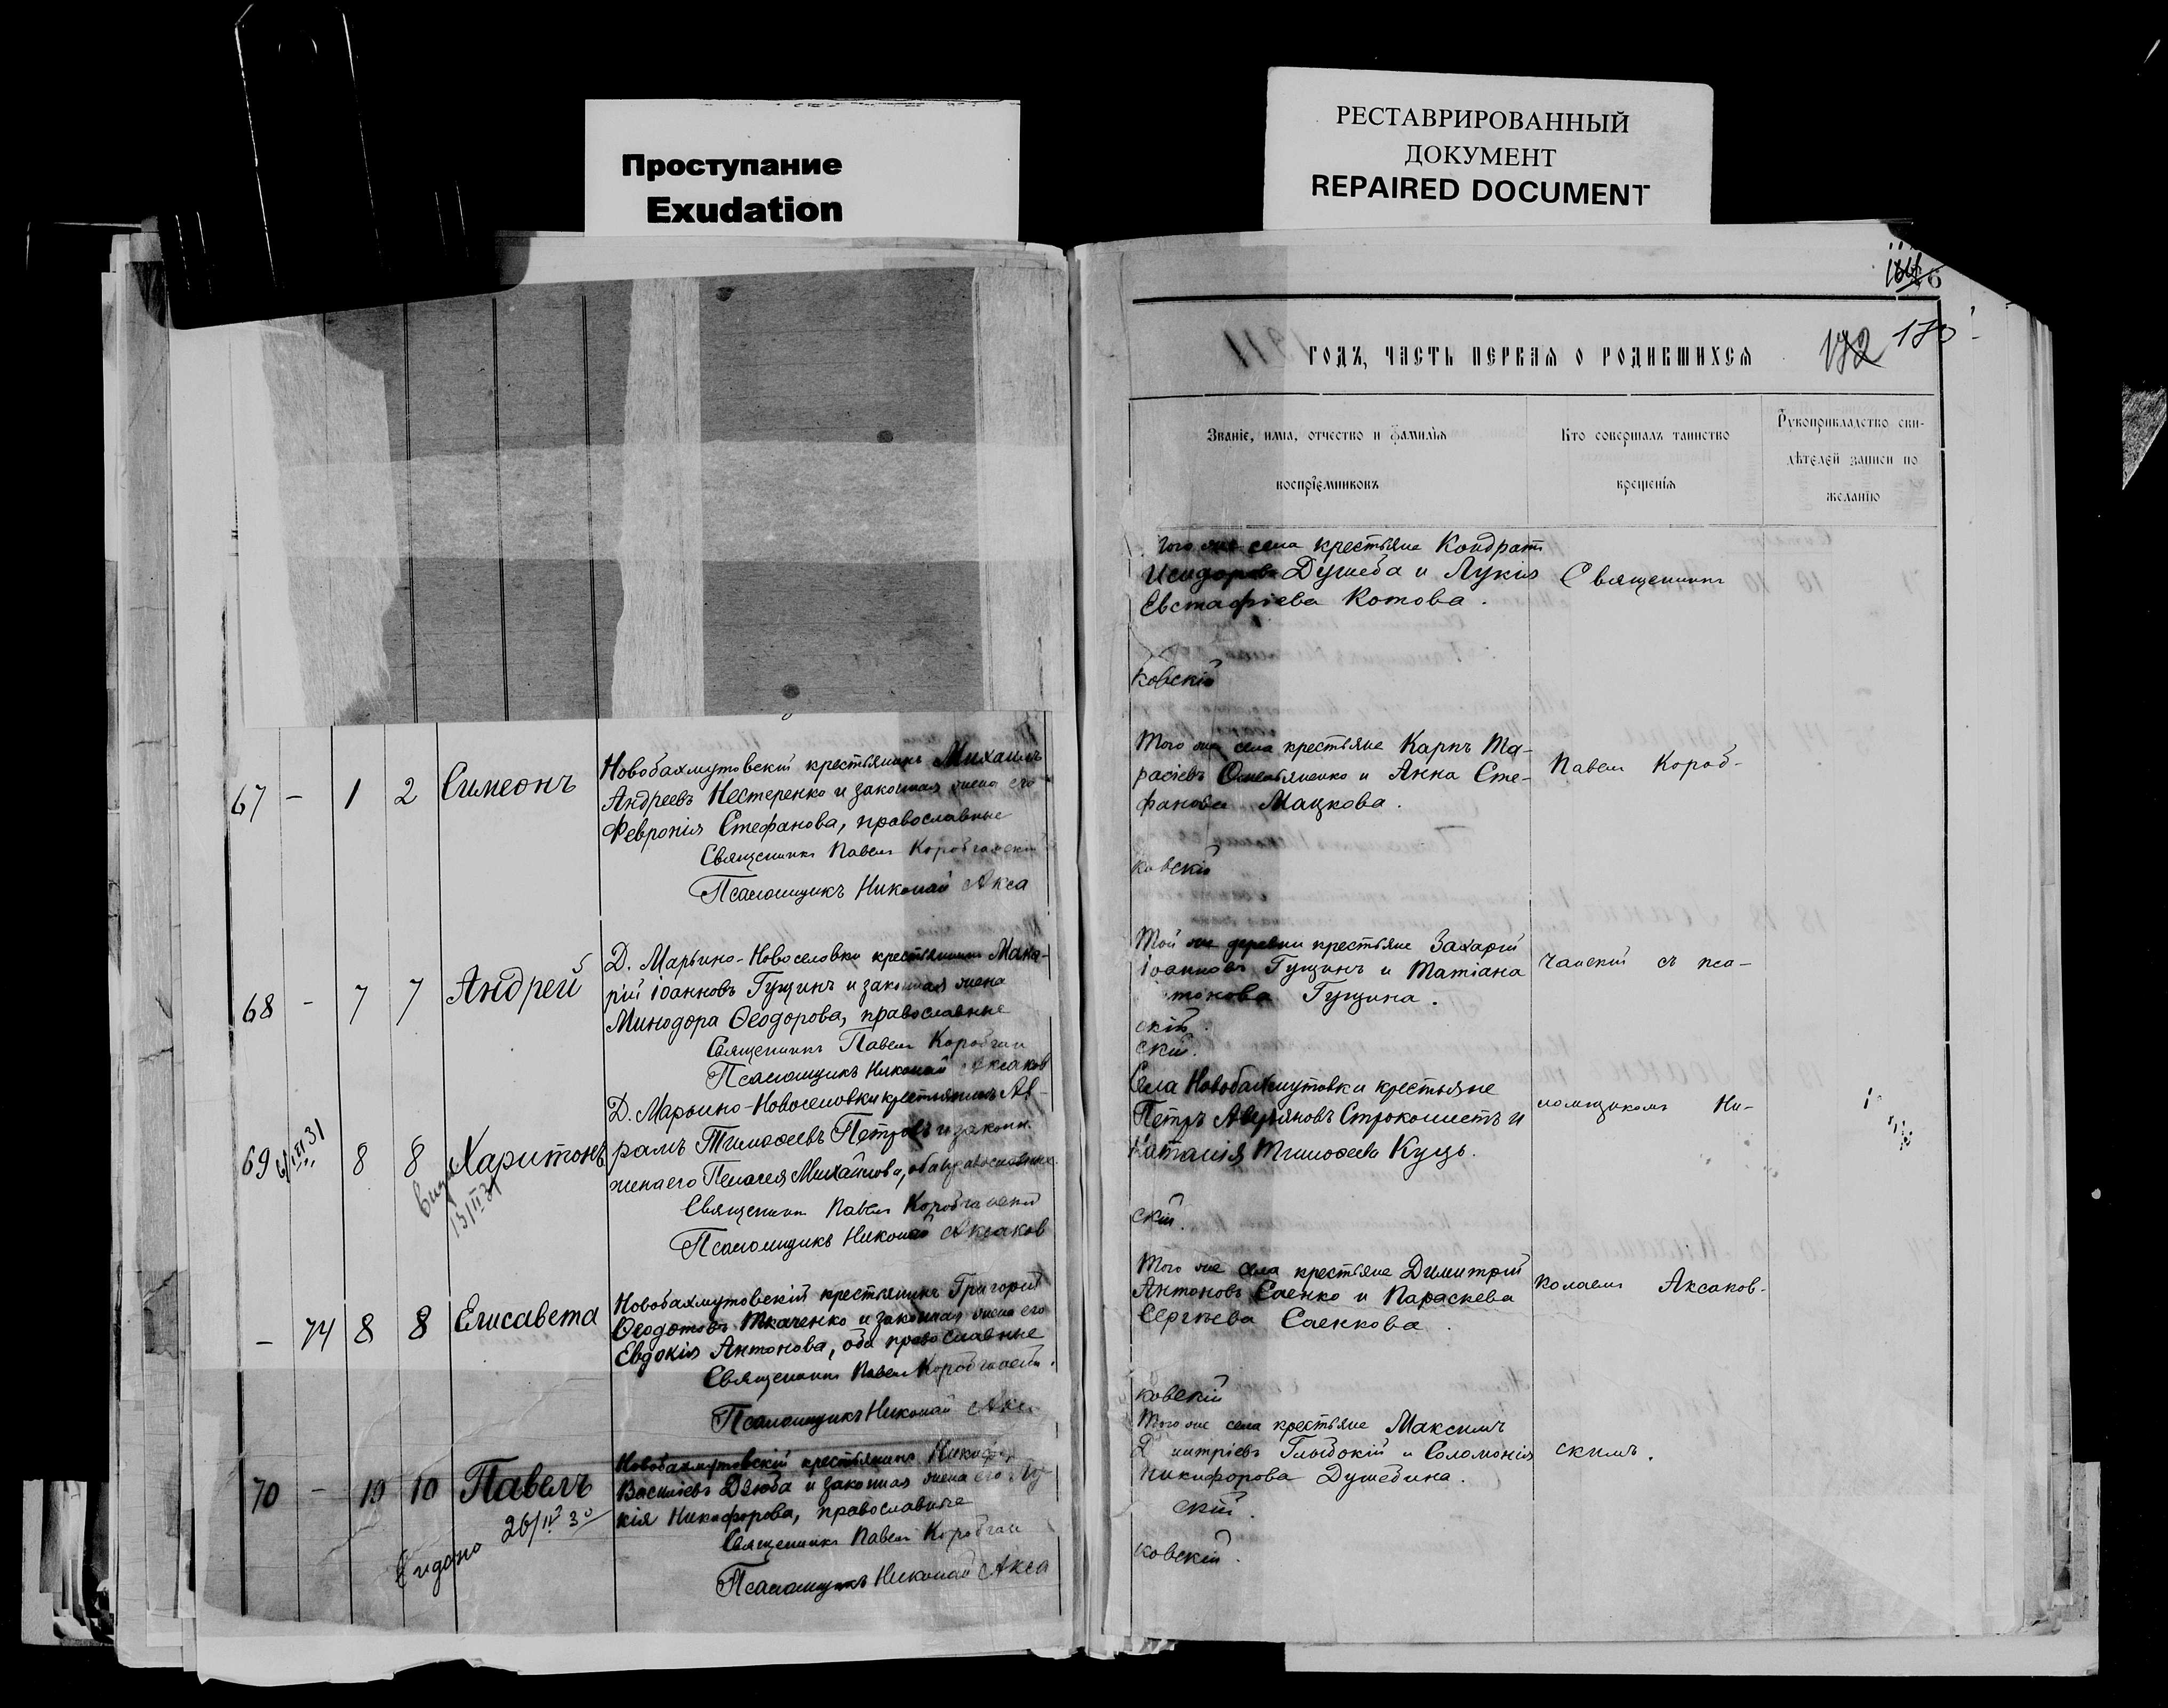 Проступание
Exudation
РЕСТАВРИРОВАННЫЙ
ДОКУМЕНТ
REPAIRED DOCUMENT
67 - 1 2 Симеонъ
Новобахмутовскій крестьянинъ Михаилъ
Андреевъ Нестеренко и законная жена его
Февронія Стефанова, православные
Священникъ Павелъ Коробчанскій
Псаломщикъ Николай Акса
68 - 7 7 Андрей
Д. Марьино-Новоселовки крестьянинъ Мака-
рій Іоанновъ Гущинъ и законная жена
Минодора Ѳеодорова, православные
Священникъ Павелъ Коробчан
Псаломщикъ Николай Аксаков
69 8 8 Харитонъ
Д. Марьино-Новоселовки крестьянинъ Ав-
рамъ Тимоѳеевъ Петровъ и законн.
жена его Пелагея Михайлова, оба православные
Священникъ Павелъ Коробчанскій
Псаломщикъ Николай Аксаков
- 74 8 8 Елисавета
Новобахмутовскій крестьянинъ Григорій
Ѳеодотовъ Ткаченко и законная жена его
Евдокія Антонова, оба православные
Священникъ Павелъ Коробчанскій.
Псаломщикъ Николай Акса
70 - 10 10 Павелъ
26/IV 30
Новобахмутовскій крестьянинъ Никифоръ
Василіевъ Дзюба и законная жена его Лу-
кія Никифорова, православные
Священникъ Павелъ Коробчан
Псаломщикъ Николай Акса
6
172 173
1911 годъ, часть первая о родившихся
Званіе, имя, отчество и фамилія
воспріемниковъ
Кто совершалъ таинство
крещенія
Рукоприкладство сви-
дѣтелей записи по
желанію
Того же села крестьяне Кондратъ
Исидоровъ Душеба и Лукія
Евстафіева Котова.
Священникъ
ковскій
Того же села крестьяне Карпъ Та-
расіевъ Омельяненко и Анна Сте-
фанова Мацкова.
Павелъ Короб-
ковскій
Той же деревни крестьяне Захарій
Іоанновъ Гущинъ и Татіана
Гущина.
чанскій съ пса-
скій.
скій.
Села Новобахмутовки крестьяне
Петръ Аверьяновъ Строкошистъ и
Наталія Тимоѳеева Куць.
ломщикомъ Ни-
скій.
Того же села крестьяне Димитрій
Антоновъ Саенко и Параскева
Сергѣева Саенкова.
колаемъ Аксаков-
ковскій
Того же села крестьяне Максимъ
Дмитріевъ Глыбокій и Соломонія
Никифорова Душебина.
скимъ.
скій.
ковскій.